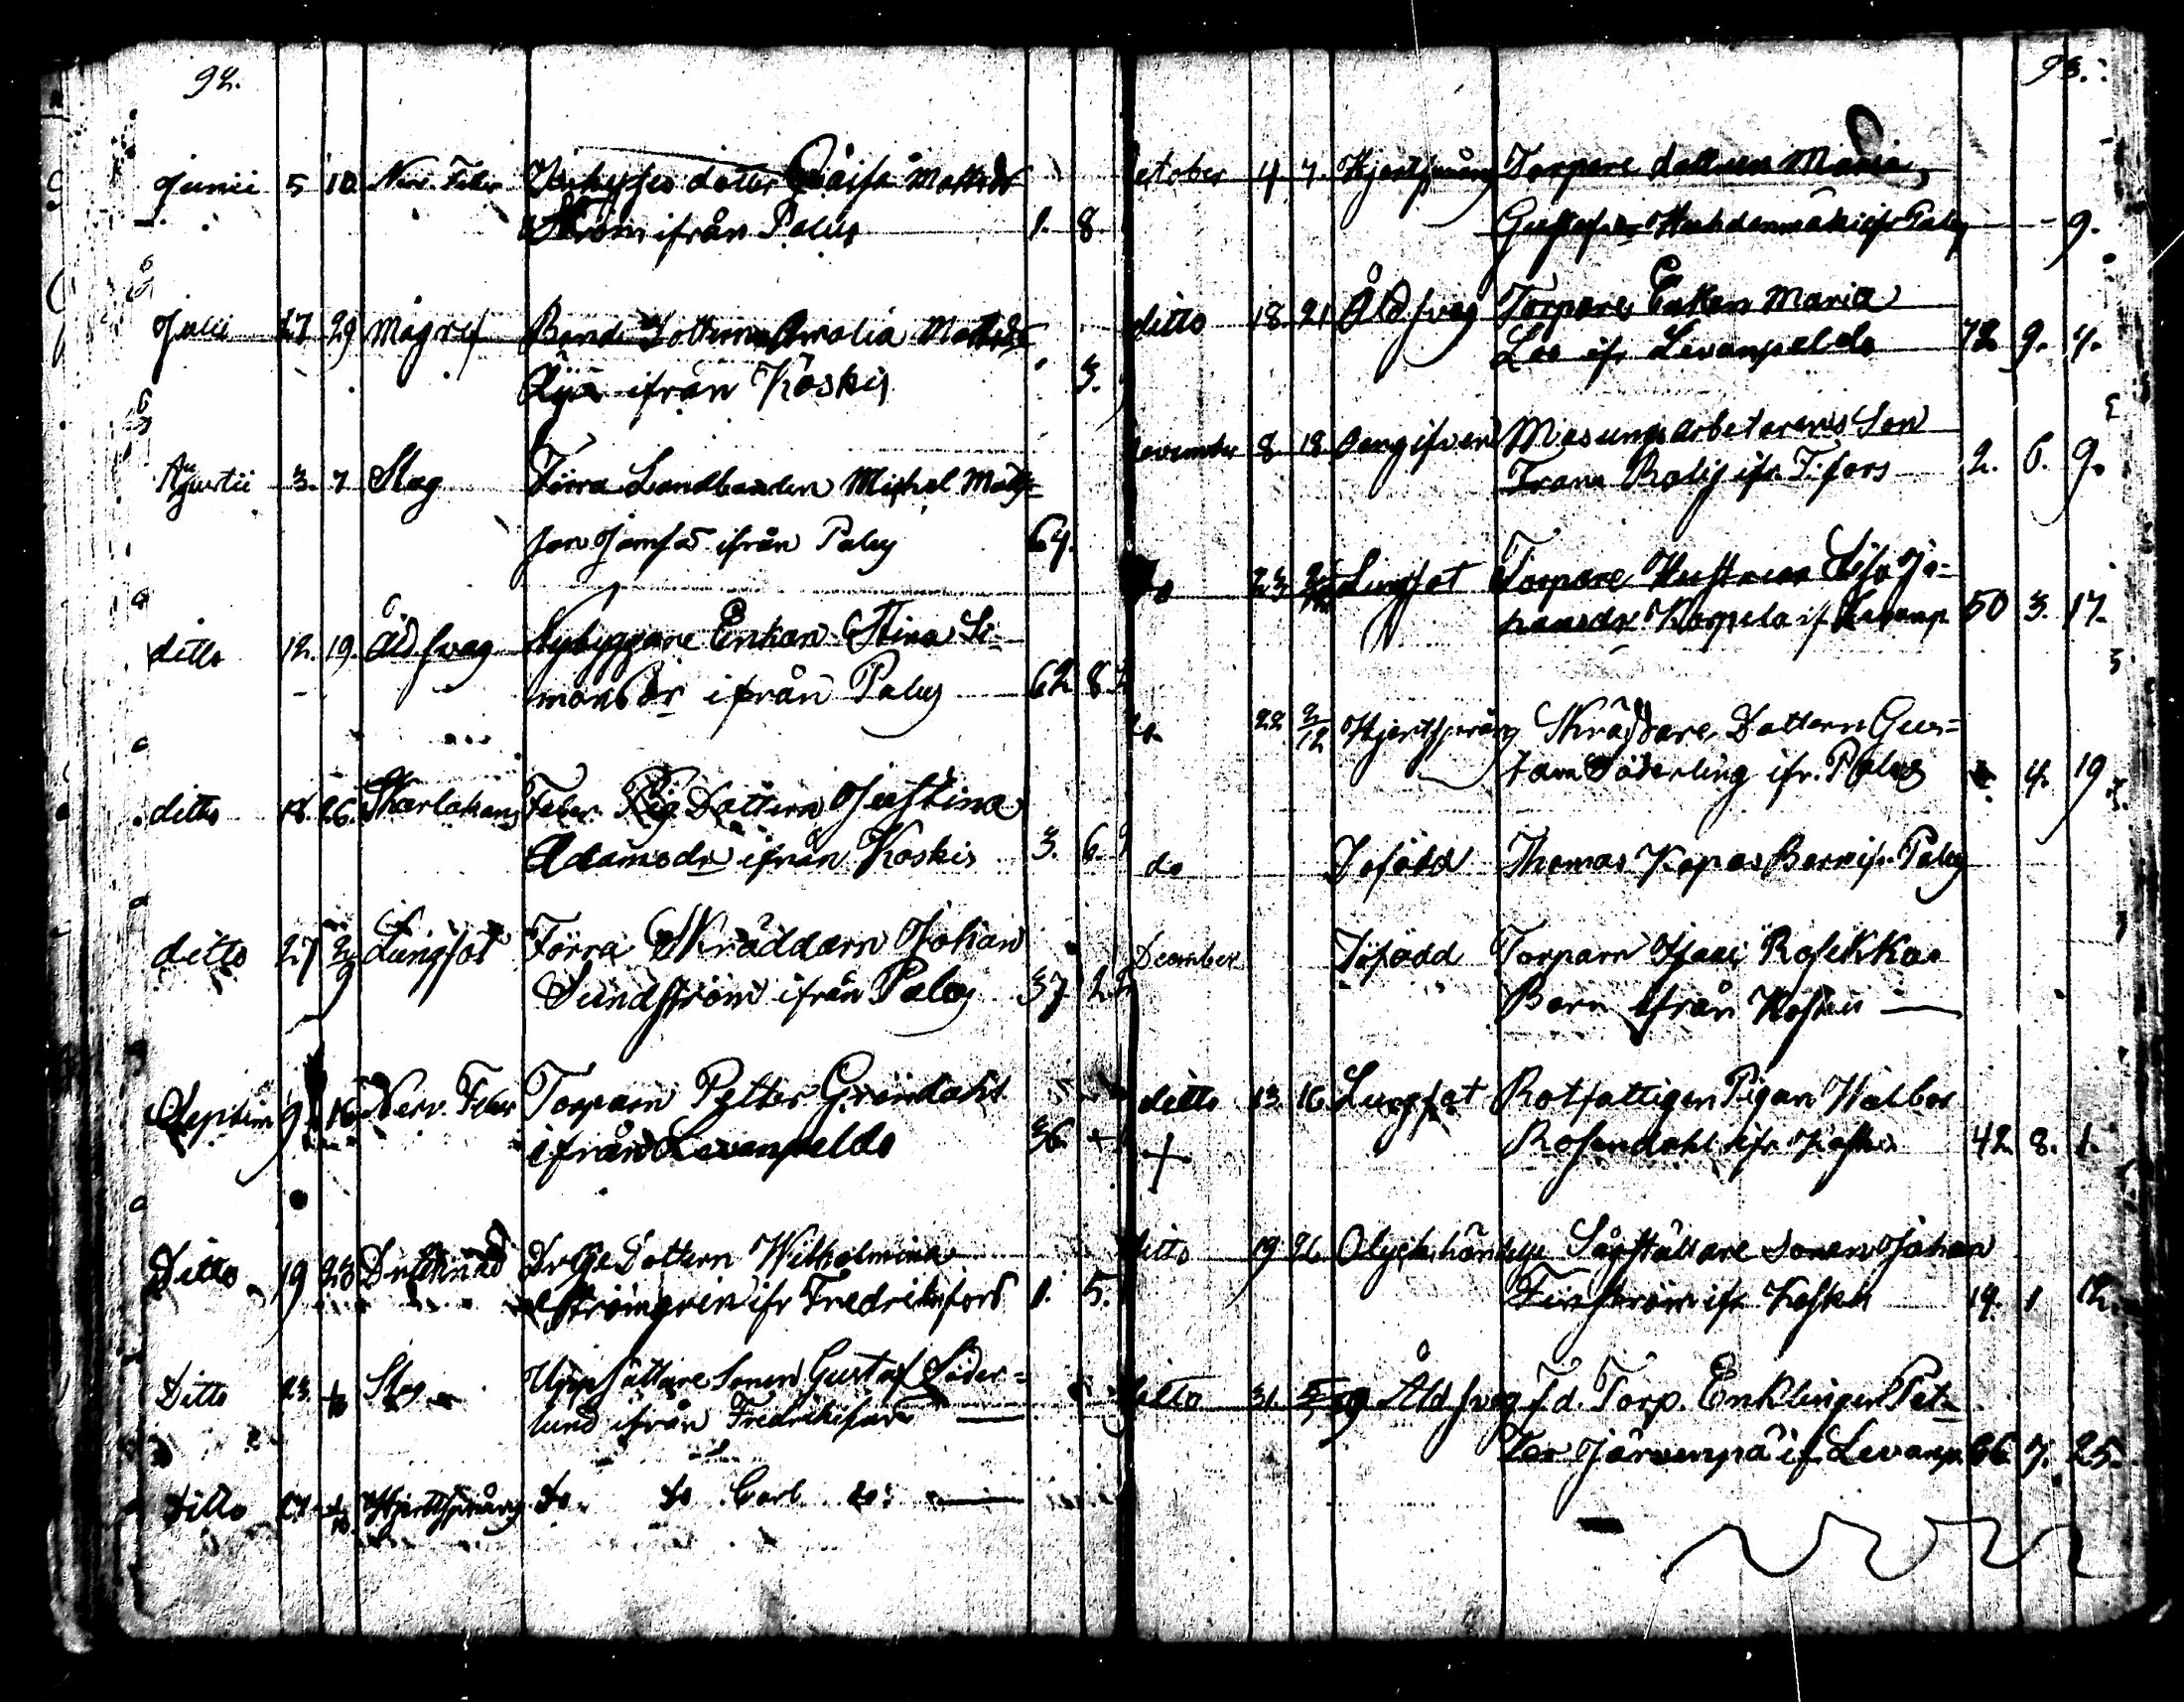 92.
Junii 5 10 Nerv. Feber Inhyses dotter Caisa Mattsdr
Ström ifrån Palus 1. 8
Julii 27 29 Magref Bonde Dottern Amalia Mattsdr
Äijä ifrån Koskis 3.
Augustii 3. 7 Slag Förra Landbonden Michel Matts
son Jamsä ifrån Palus 64.
ditto 12. 19. Åld svag Nybyggare Enkan Stina Si-
monsdr ifrån Palus 62 8
ditto 18. 26. Skarlakans Feber Pig Dottern Justina
Adamsdr ifrån Koskis 3. 6
ditto 27 2/9 Lungsot Förra Skräddarn Johan
Sundström ifrån Palus 37 2
Septem 9 16 Nerv. Feber Torparn Petter Gröndahl
ifrån Levanpeldo 36.
Ditto 19 23 Drgs Dottern Wilhelmina
Strömgren ifr Fredriksfors 1. 5.
Ditto 23. Slag Uppsättare Sonen Gustaf Söder=
lund ifrån Fredriksfors
ditto Hjertsprång do do Carl do
93.
October 4 7. Hjertsprång Torpare dottern Maria
Gustafsdr ifr Palus 9.
ditto 18. 21 Åld svag Torpare Enkan Maria
Loo ifr Levanpeldo 72 9. 4.
November 8. 18. Oangifven Masungsarbetarens Son
Frans Rolig ifr. F:fors 2. 6. 9.
do 23 Lungsot Torpare Hustrun Lisa Jo=
hansdr Korpela if Levanp 50 3. 17.
do. 22 2/12 Hjertsprång Skräddare Dottern Gus=
tava Söderling ifr. Palus 4. 19
do Dödfödd Thomas Barn ifr Palus
December Dödfödd Torparn
Barn ifrån Koskis
ditto 13. 16 Lungsot Rotfattigen Pigan Walbor
Rosendahl ifr Koskis 42. 8. 1.
+
ditto 19 26 Olyckshändelse Sågställare Sonen Johan
Finström ifr Koskis 19. 1 12.
ditto 31. Åld svag f.d. Torp. Enklingen Pet-
ter Järvenpä if Levanp. 66 7. 25.